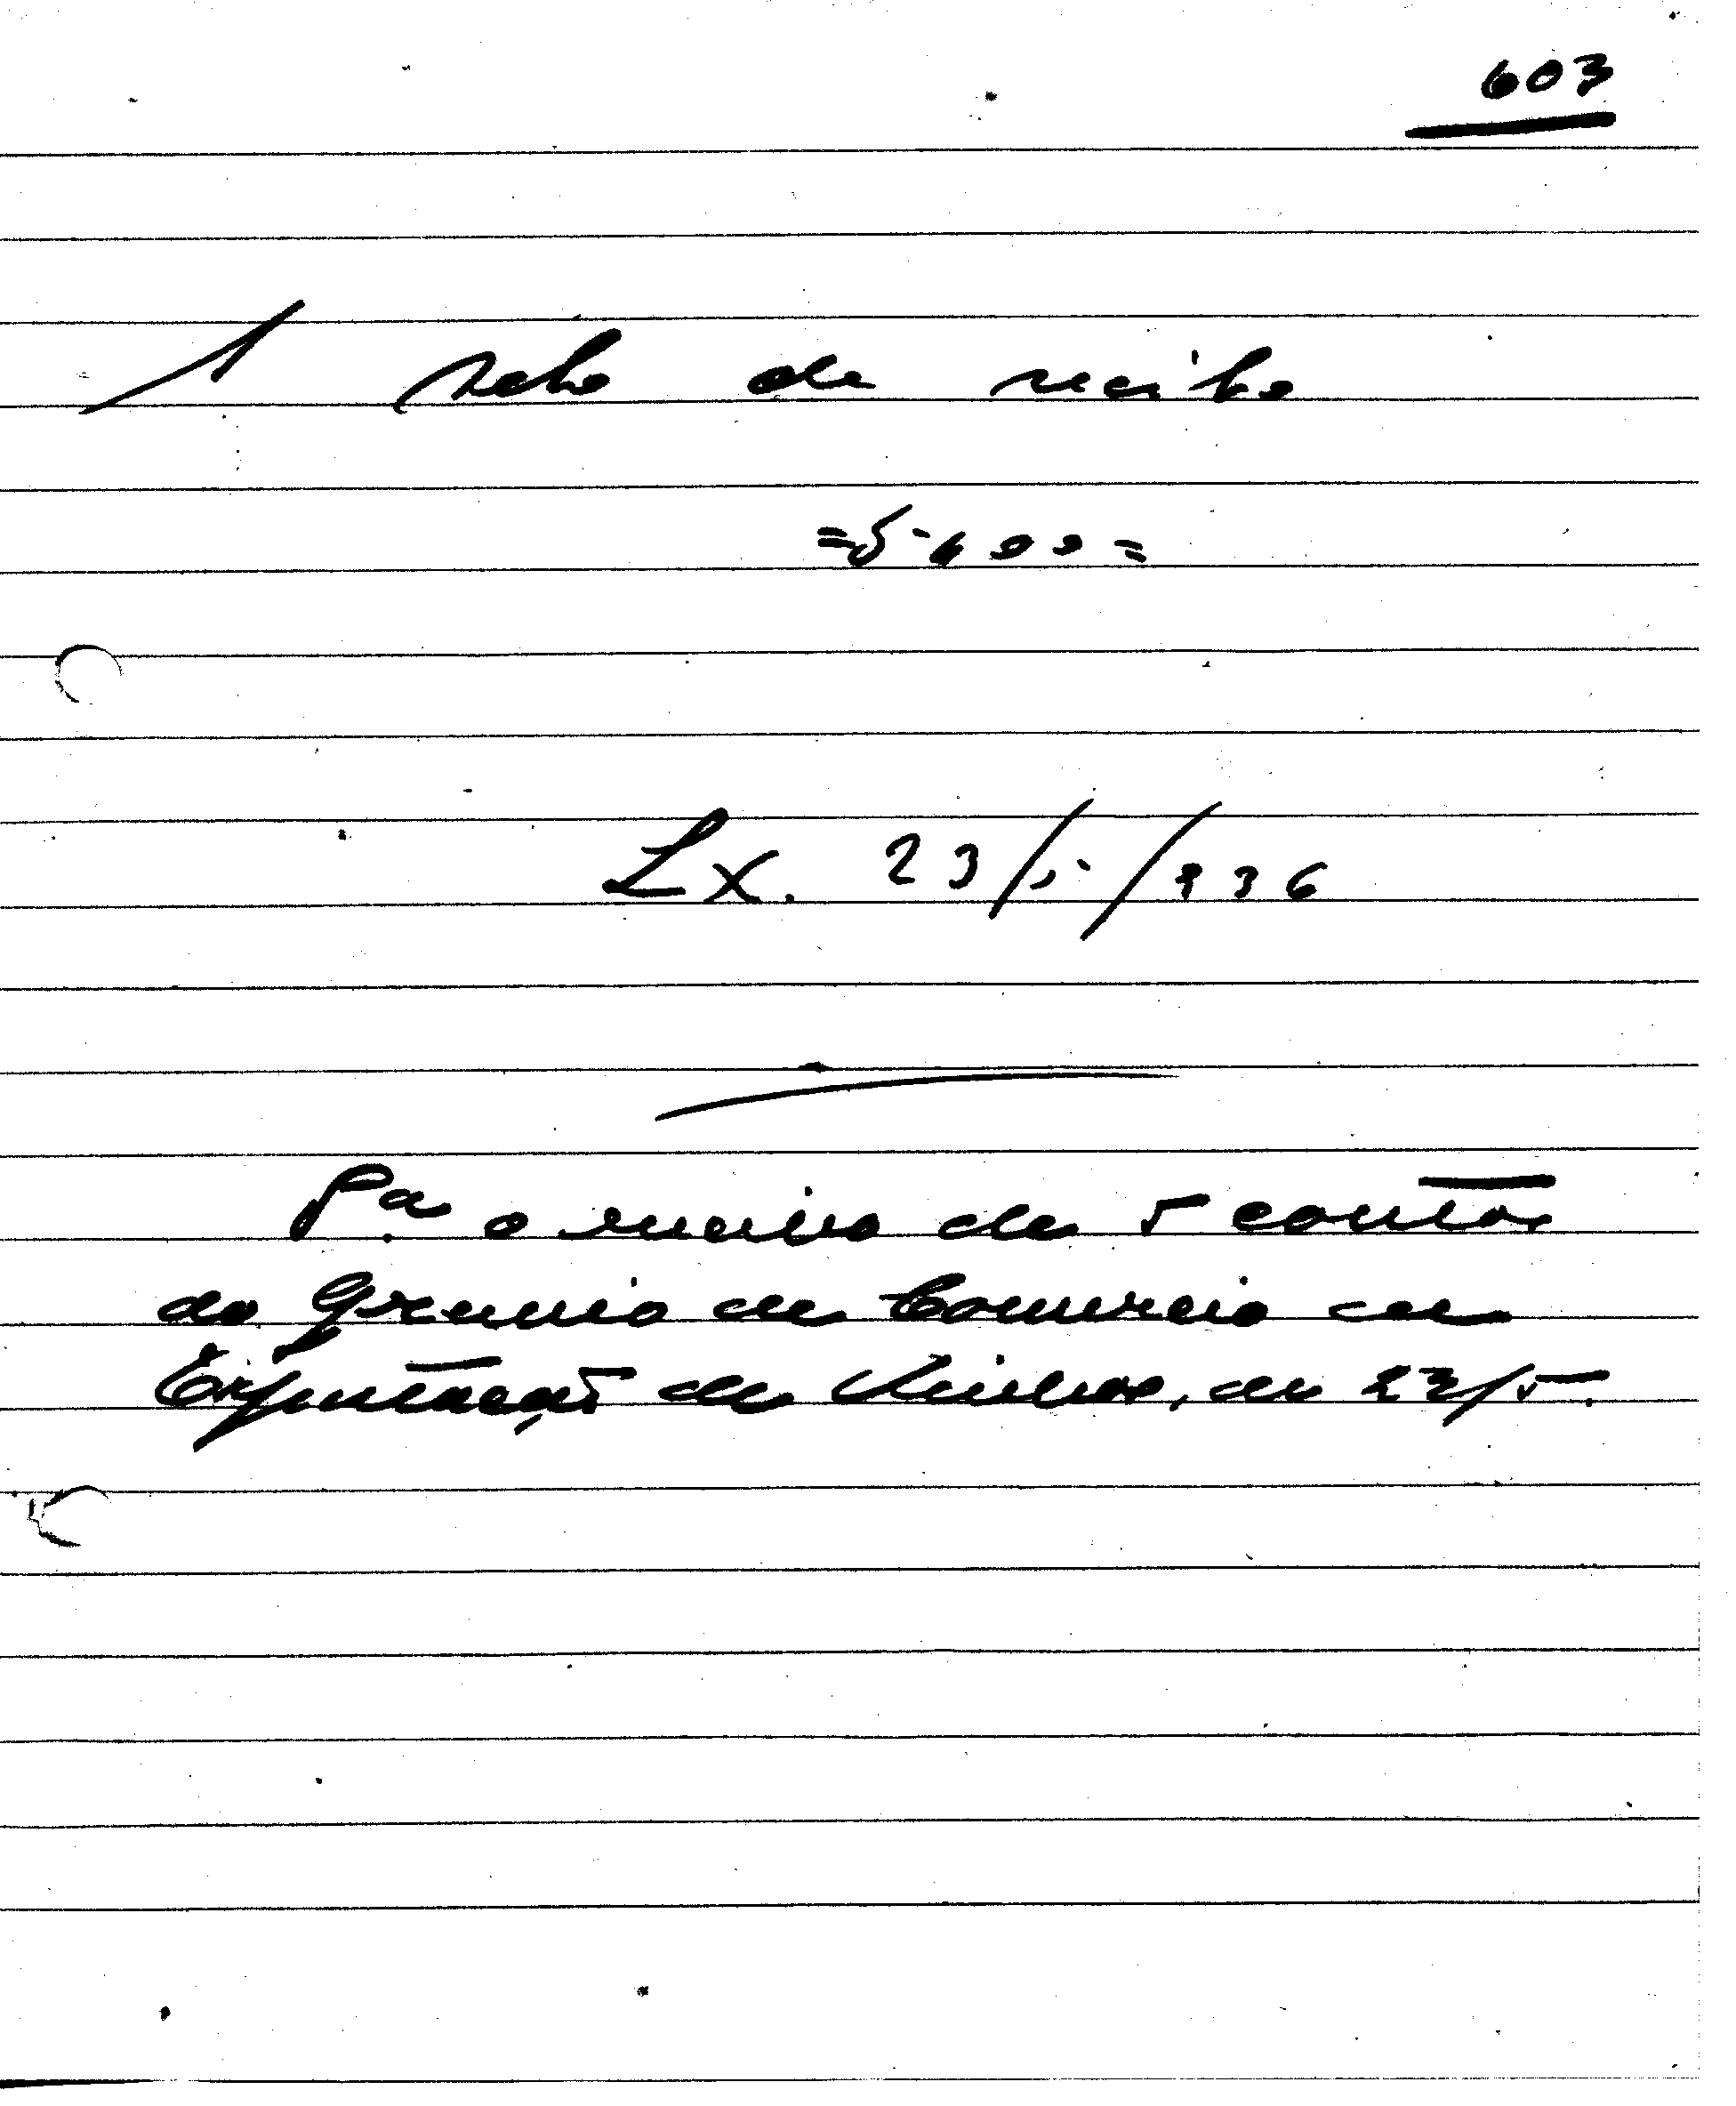 603
1 selo de recibo
=5$00=
Lx. 23/5/936
Pª. o recibo de 5 contos
do Gremio de Comercio de
Exportação de Vinhos, de 23/5.